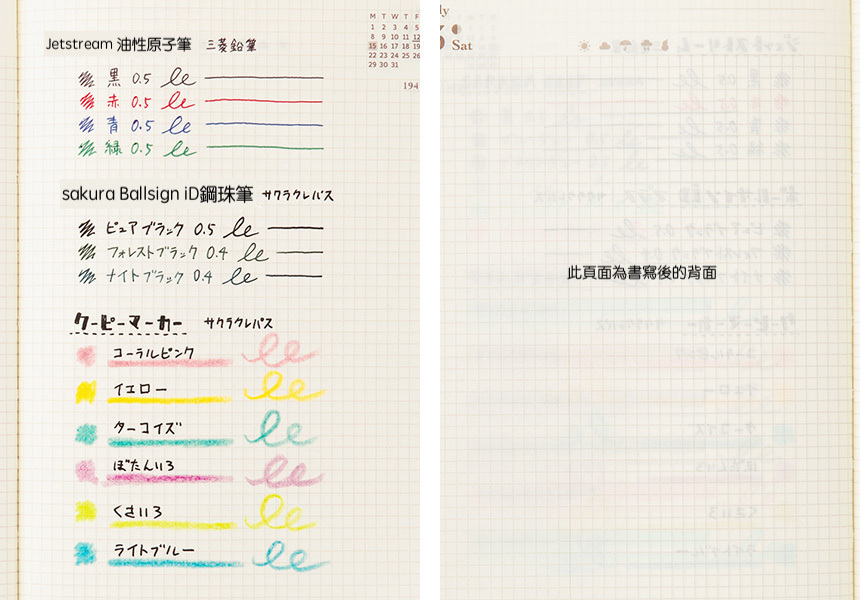 Jetstream 油性原子筆 三菱鉛筆
黒 0.5 le
赤 0.5 le
青 0.5 le
緑 0.5 le
sakura Ballsign iD鋼珠筆 サクラクレパス
ピュアブラック 0.5 le
フォレストブラック 0.4 le
ナイトブラック 0.4 le
クーピーマーカー サクラクレパス
コーラルピンク le
イエロー le
ターコイズ le
ぼたんいろ le
くさいろ le
ライトブルー le
M T W T F S
1 2 3 4 5 6
8 9 10 11 12 13
15 16 17 18 19
22 23 24 25 26
29 30 31
194
ly
Sat
此頁面為書寫後的背面